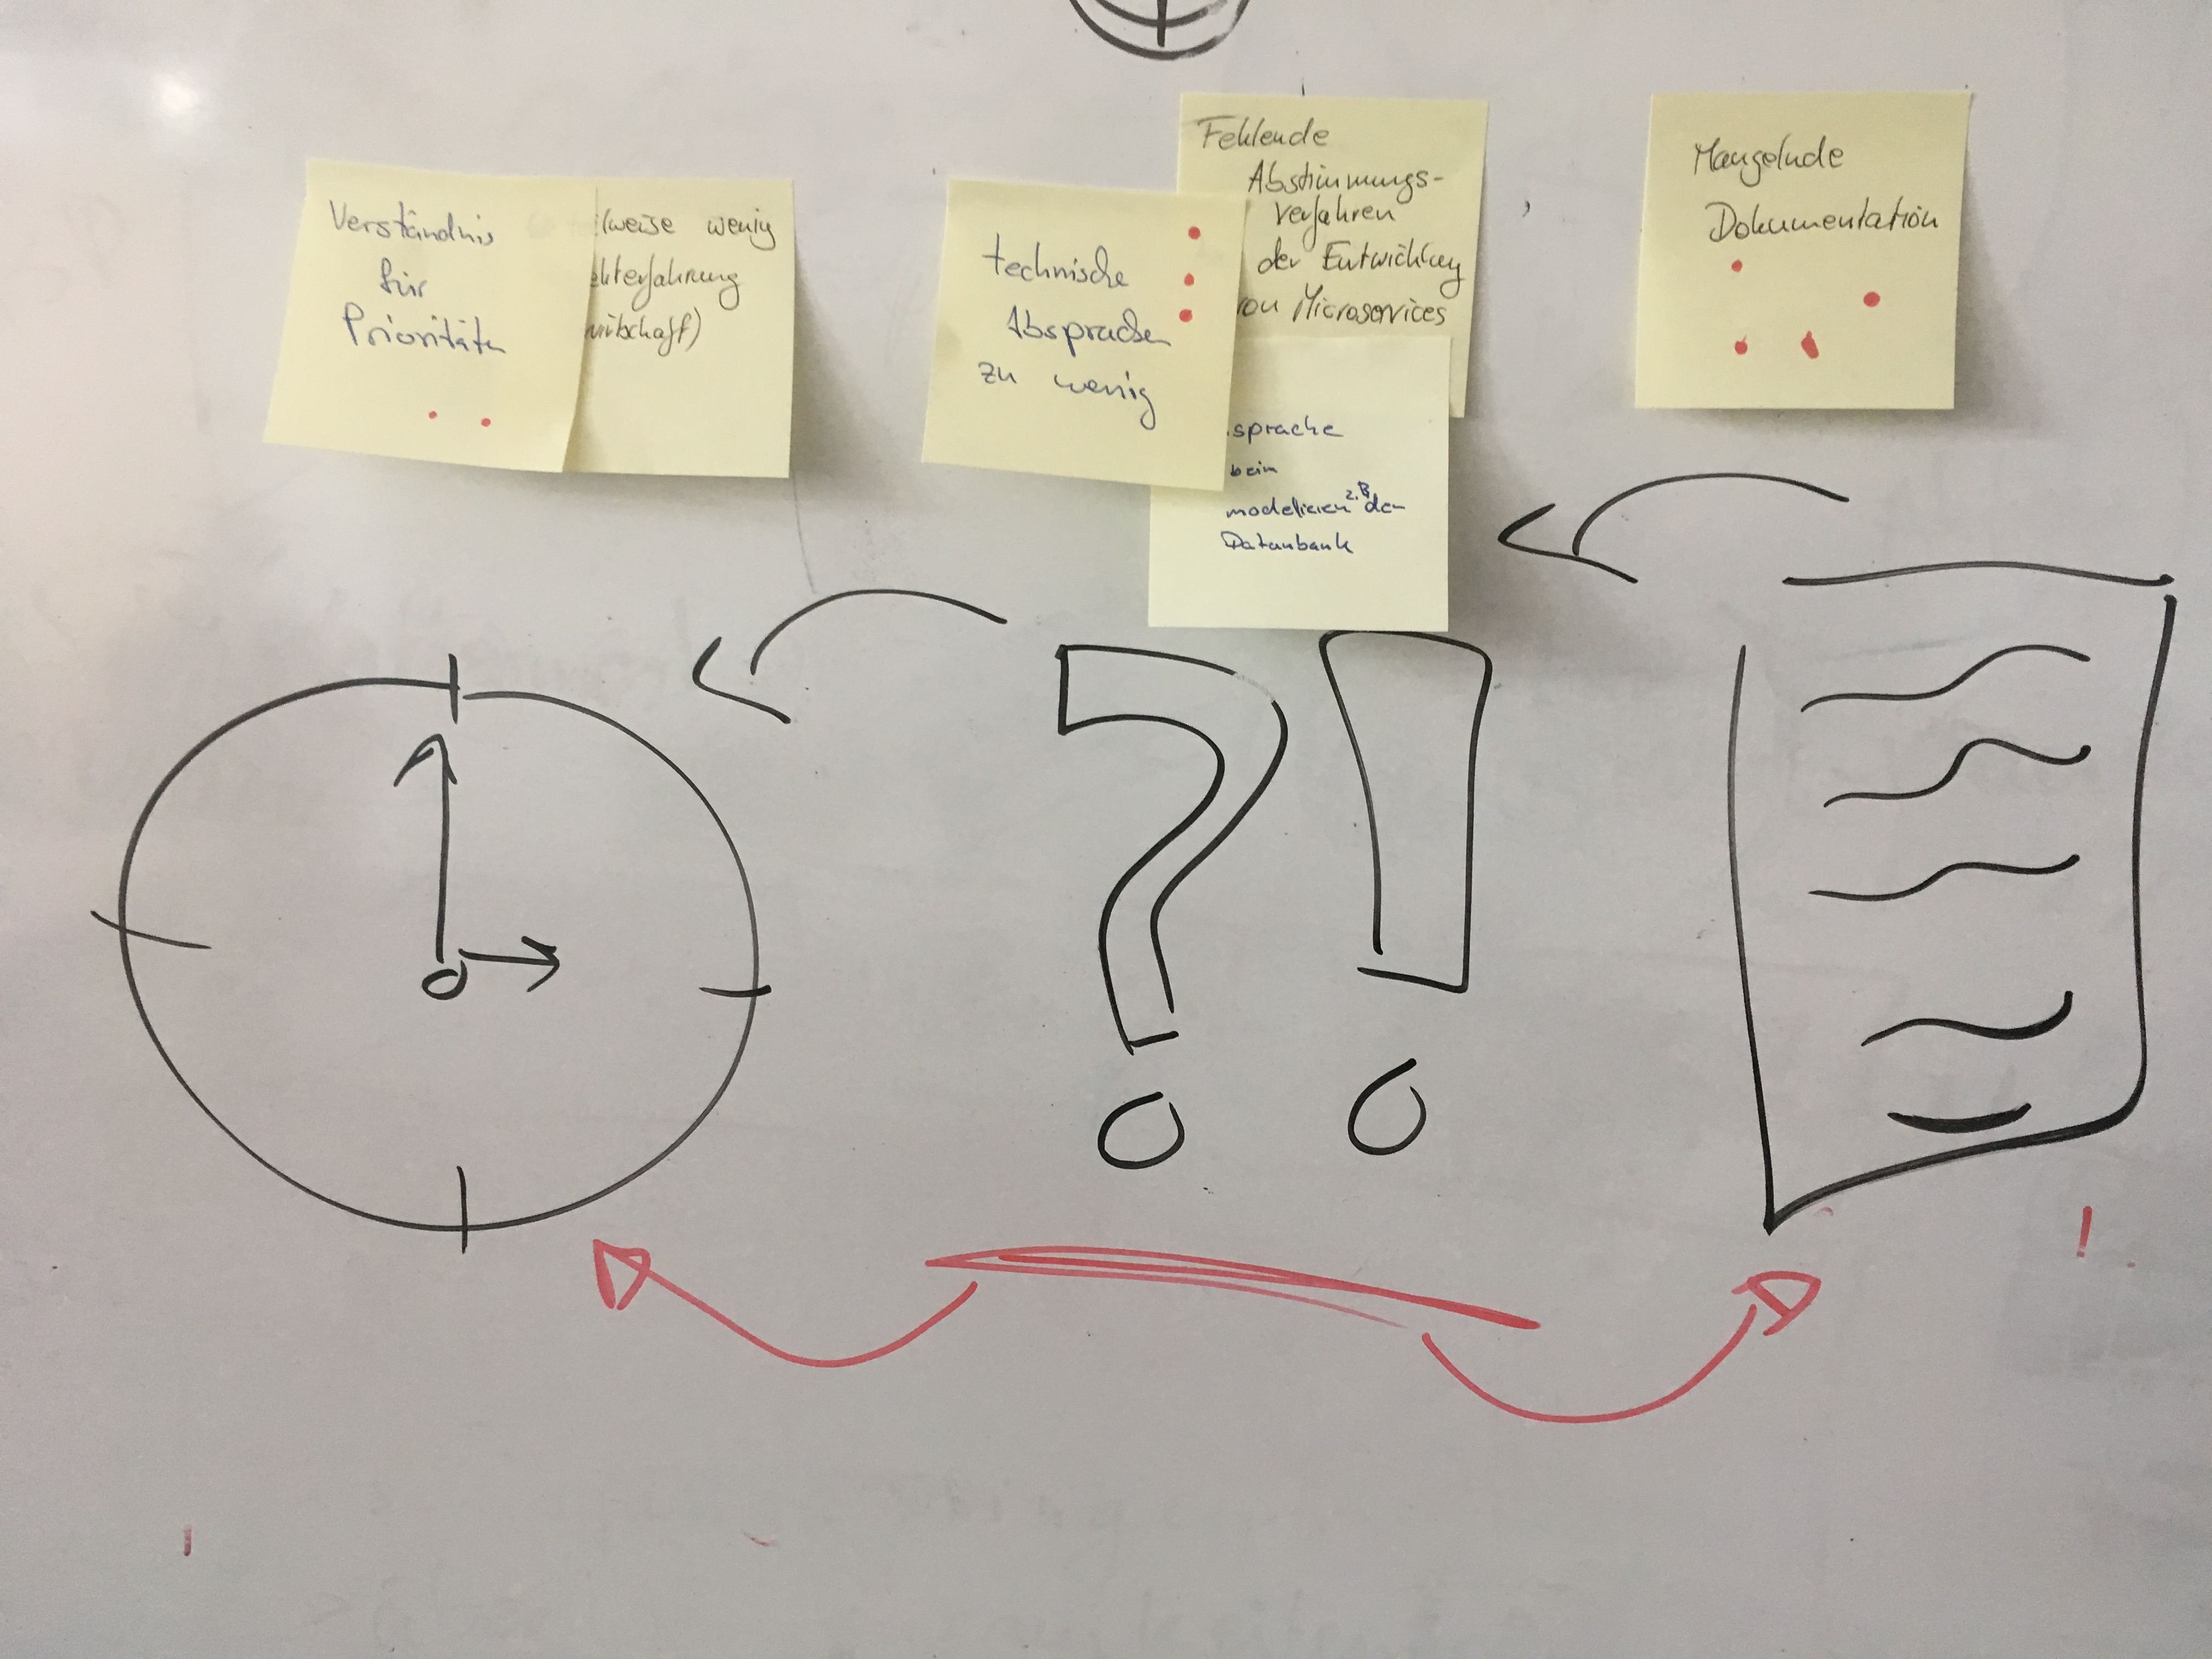 Verständnis
für
Prioritäten
wenig
technische
Absprachen
zu wenig
Fehlende
Abstimmungs-
verfahren
der Entwicklung
von Microservices
sprache
beim
modelieren z.B. der
Datenbank
Mangelnde
Dokumentation
?!
!